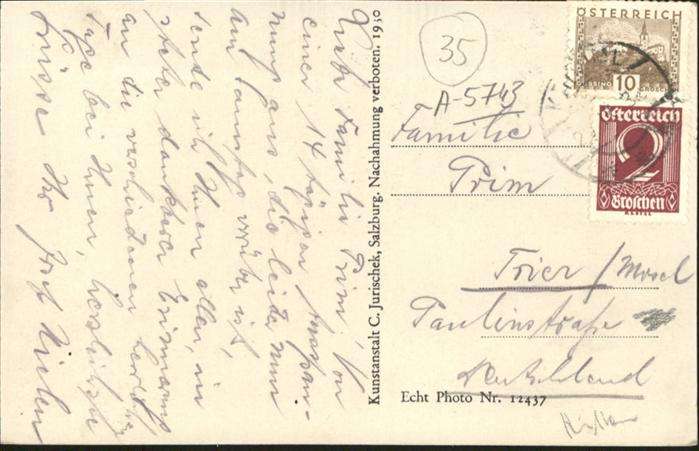 Liebe Familie Prim, Von
einer 14 tägigen
aus die leider nun
am Samstag vorüber ist,
sende ich Ihnen allen, in
steter dankbarer Erinnerung
an die verschiedenen
Tage bei Ihnen, herzlichste
Grüsse Ihr
Kunstanstalt C. Jurischek, Salzburg. Nachahmung verboten. 1930
35
ÖSTERREICH
10
GROSCHEN
Österreich
2
Groschen
A-5743
Familie
Prim
Trier / Mosel
Paulinstraße
Deutschland
Echt Photo Nr. 12437